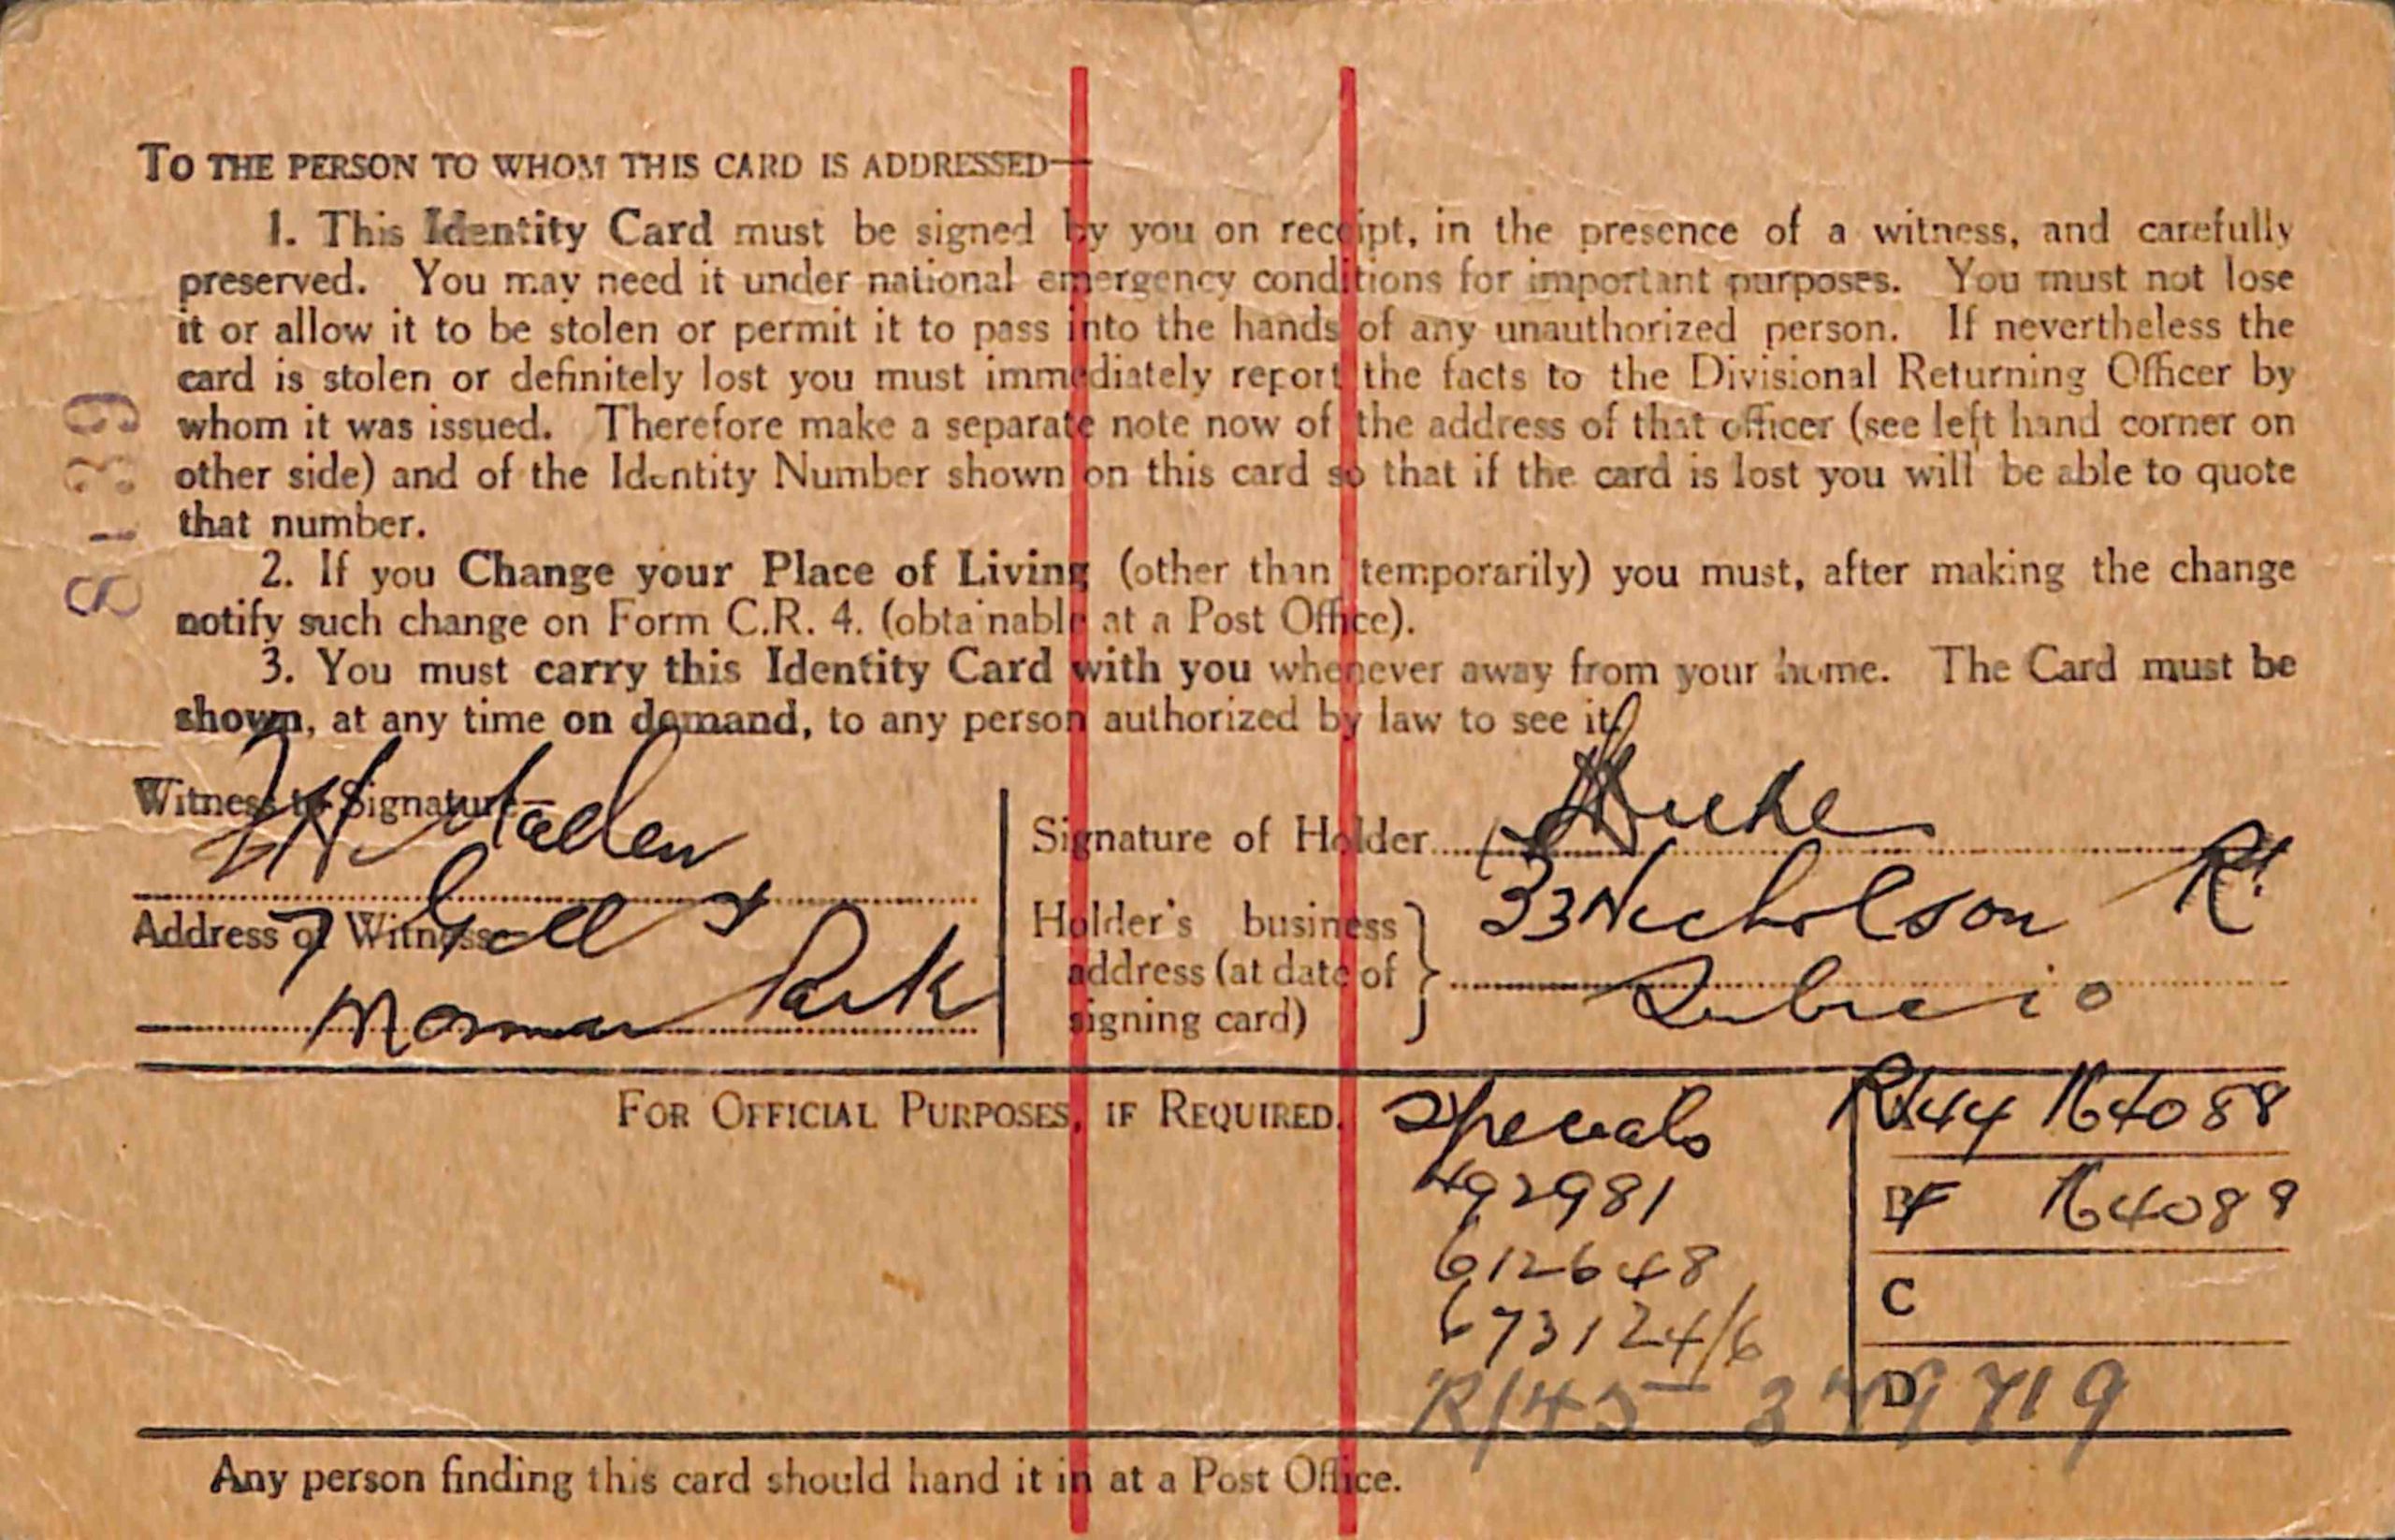 TO THE PERSON TO WHOM THIS CARD IS ADDRESSED—
1. This Identity Card must be signed by you on receipt, in the presence of a witness, and carefully
preserved. You may need it under national emergency conditions for important purposes. You must not lose
it or allow it to be stolen or permit it to pass into the hands of any unauthorized person. If nevertheless the
card is stolen or definitely lost you must immediately report the facts to the Divisional Returning Officer by
whom it was issued. Therefore make a separate note now of the address of that officer (see left hand corner on
other side) and of the Identity Number shown on this card so that if the card is lost you will be able to quote
that number.
2. If you Change your Place of Living (other than temporarily) you must, after making the change
notify such change on Form C.R. 4. (obtainable at a Post Office).
3. You must carry this Identity Card with you whenever away from your home. The Card must be
shown, at any time on demand, to any person authorized by law to see it.
8139
Witness to Signature—
Address of Witness—
7
Park
Signature of Holder
Holder's business address (at date of signing card)
33 Nicholson Rd
Subiaco
FOR OFFICIAL PURPOSES, IF REQUIRED.
Specials
492981
612648
673124/6
R/45
R/44 164088
B 164089
C
D
719
Any person finding this card should hand it in at a Post Office.